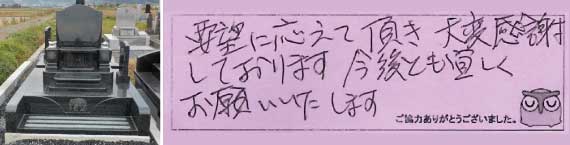 要望に応えて頂き 大変感謝
しております 今後とも宜しく
お願いいたします
ご協力ありがとうございました。